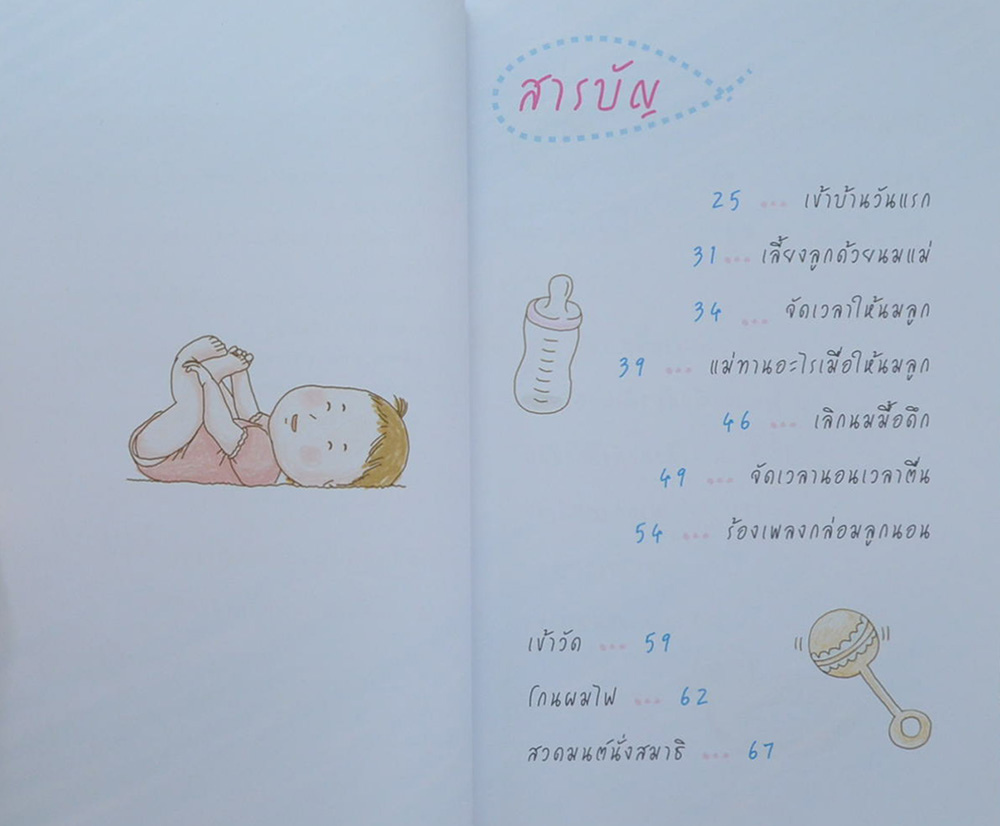 สารบัญ
25 ... เข้าบ้านวันแรก
31 ... เลี้ยงลูกด้วยนมแม่
34 ... จัดเวลาให้นมลูก
39 ... แม่ทานอะไรเมื่อให้นมลูก
46 ... เลิกนมมื้อดึก
49 ... จัดเวลานอนเวลาตื่น
54 ... ร้องเพลงกล่อมลูกนอน
เข้าวัด ... 59
โกนผมไฟ ... 62
สวดมนต์นั่งสมาธิ ... 67